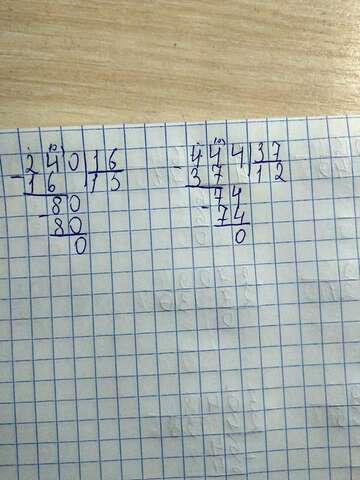 10 10
240 16 444 37
- 16 15 - 37 12
- 80 - 74
80 74
0 0